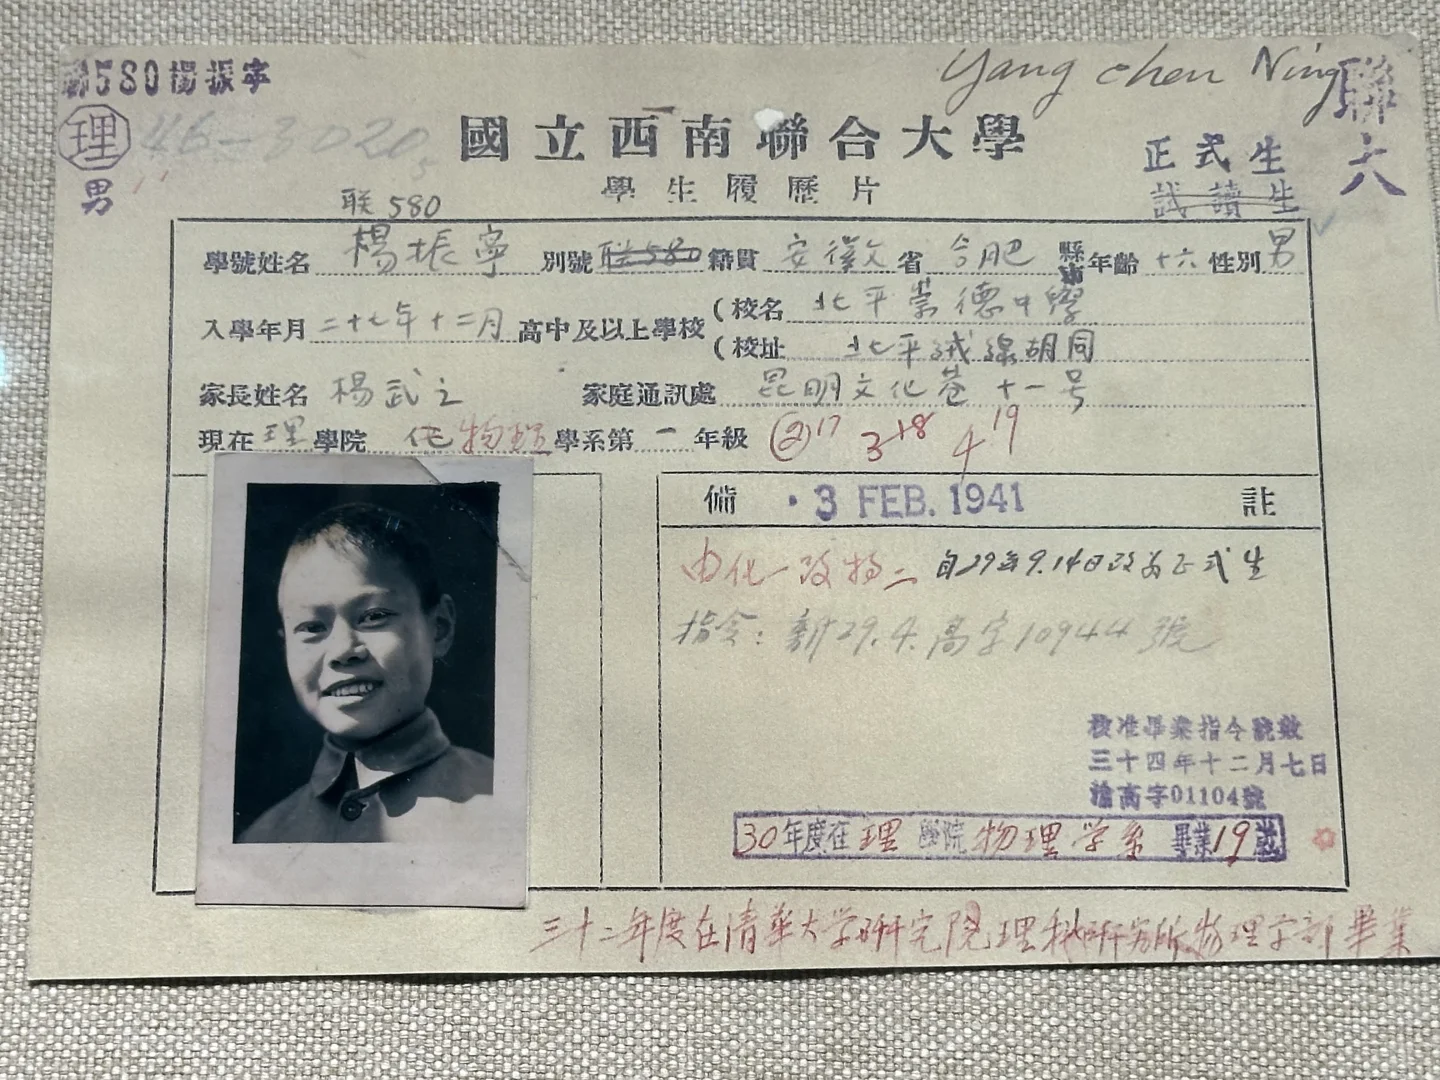 聯580楊振寧
Yang Chen Ning
聯六
理
男
國立西南聯合大學
學生履歷片
正式生
試讀生
联580
學號姓名 楊振寧 別號 联580 籍貫 安徽 省 合肥 縣市 年齡 十六 性別 男
入學年月 二十七年十二月 高中及以上學校 (校名 北平崇德中學
(校址 北平绒線胡同
家長姓名 楊武之 家庭通訊處 昆明文化巷十一号
現在 理 學院 化 物理 學系第 一 年級 ② 17 3 18 4 19
備 註
3 FEB. 1941
由化一改物二 自29年9.14日改为正式生
指令: 新29.4.高字10944號
核准畢業指令號數
三十四年十二月七日
渝高字01104號
30年度在理學院物理学系畢業19歲
三十二年度在清華大学研究院理科研究所物理学部畢業